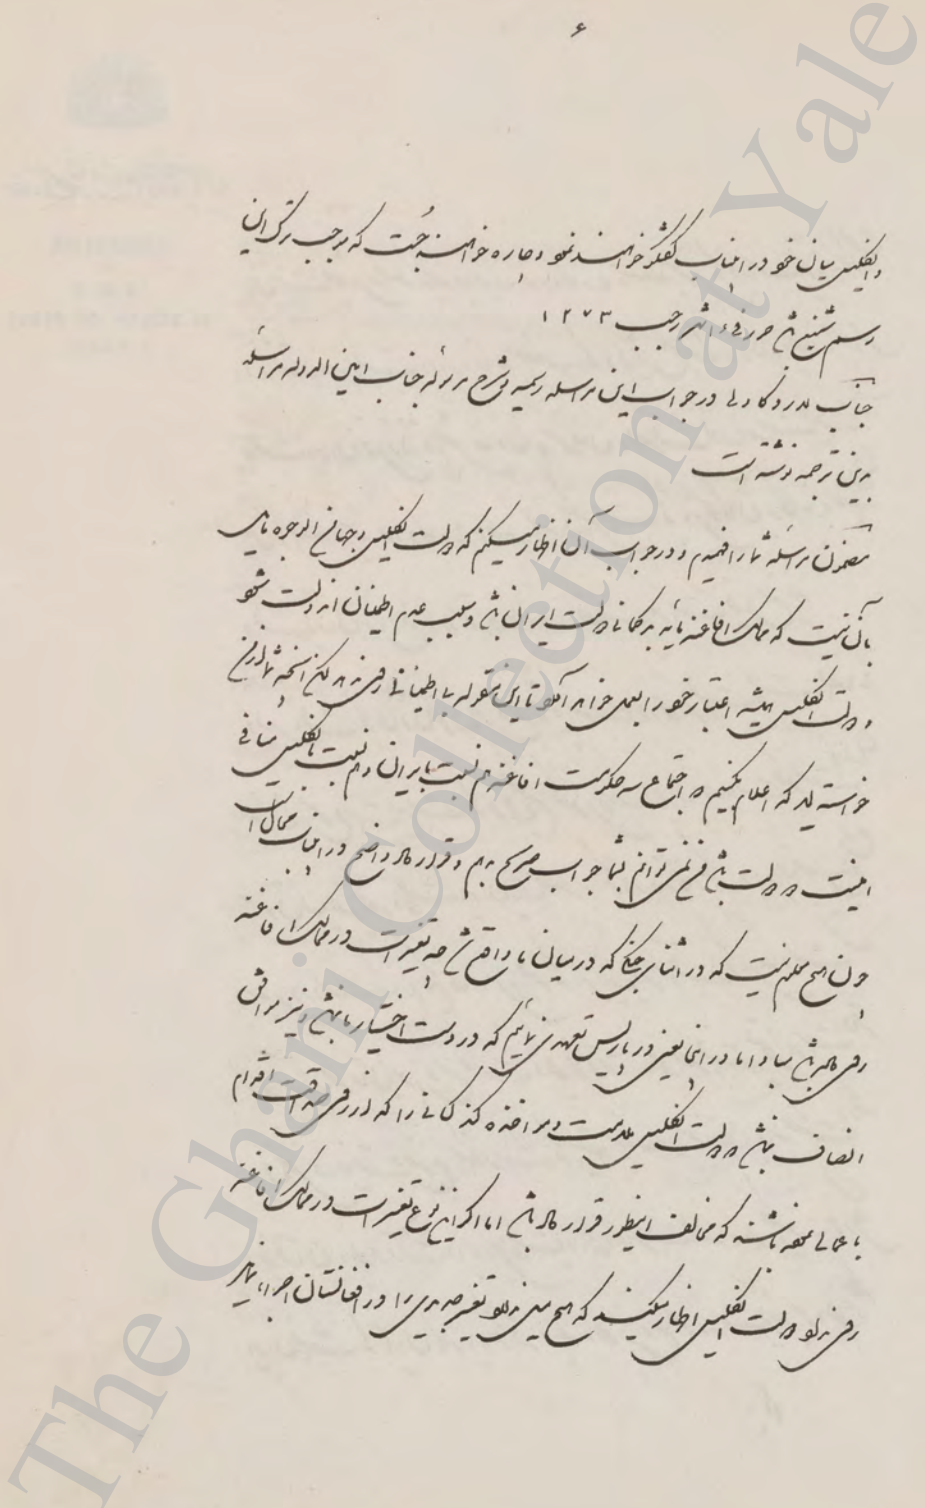 ۶
و انگلیس میان خود در اینباب گفتگو خواهند نمود و چاره خواهند جُست که موجب ترک این
رسم شنیع شود فی شهر رجب ۱۲۷۳
جناب لارد کاولی در جواب این مراسله رسمیه مشرح مرسوله جناب امین الدوله مراسله
بدین ترجمه نوشته است
مضمون مراسله شما را فهمیدم و در جواب آن اظهار میکنم که دولت انگلیس بهیچ الوجوه مایل
بآن نیست که ممالک افاغنه مایه بدگمانی دولت ایران باشد و سبب عدم اطمینان آن دولت شود
و دولت انگلیس همیشه اعتبار خود را بعمل خواهد آورد تا این مقوله بی اطمینانی رفع شود لکن آنچه شما از من
خواسته اید که اعلام بکنیم اجتماع سه حکومت افاغنه هم نسبت بایران و هم نسبت بانگلیس منافی
امنیت دو دولت باشد من نمی توانم بشما جواب صریح بدهم و قرار کار واضح در اینباب محال است
چون هیچ معلوم نیست که در اثنای جنگی که در میان ما واقع شد چه تغییرات در ممالک افاغنه
روی داده باشد و اما در اینجا یعنی در پاریس تعهدی نمائیم که در دست اختیار ما نباشد و نیز موافق
انصاف نباشد دولت انگلیس ملامت و مواخذه کند کسانی را که در روی صداقت اقدام
باعمالی نموده باشند که مخالف اینطور قرار کار باشد اما اگر این نوع تغییرات در ممالک افاغنه
روی نداده دولت انگلیس اظهار میکند که هیچ میل ندارد تغییر جدیدی را در افغانستان اجرا نماید
The Ghani Collection at Yale